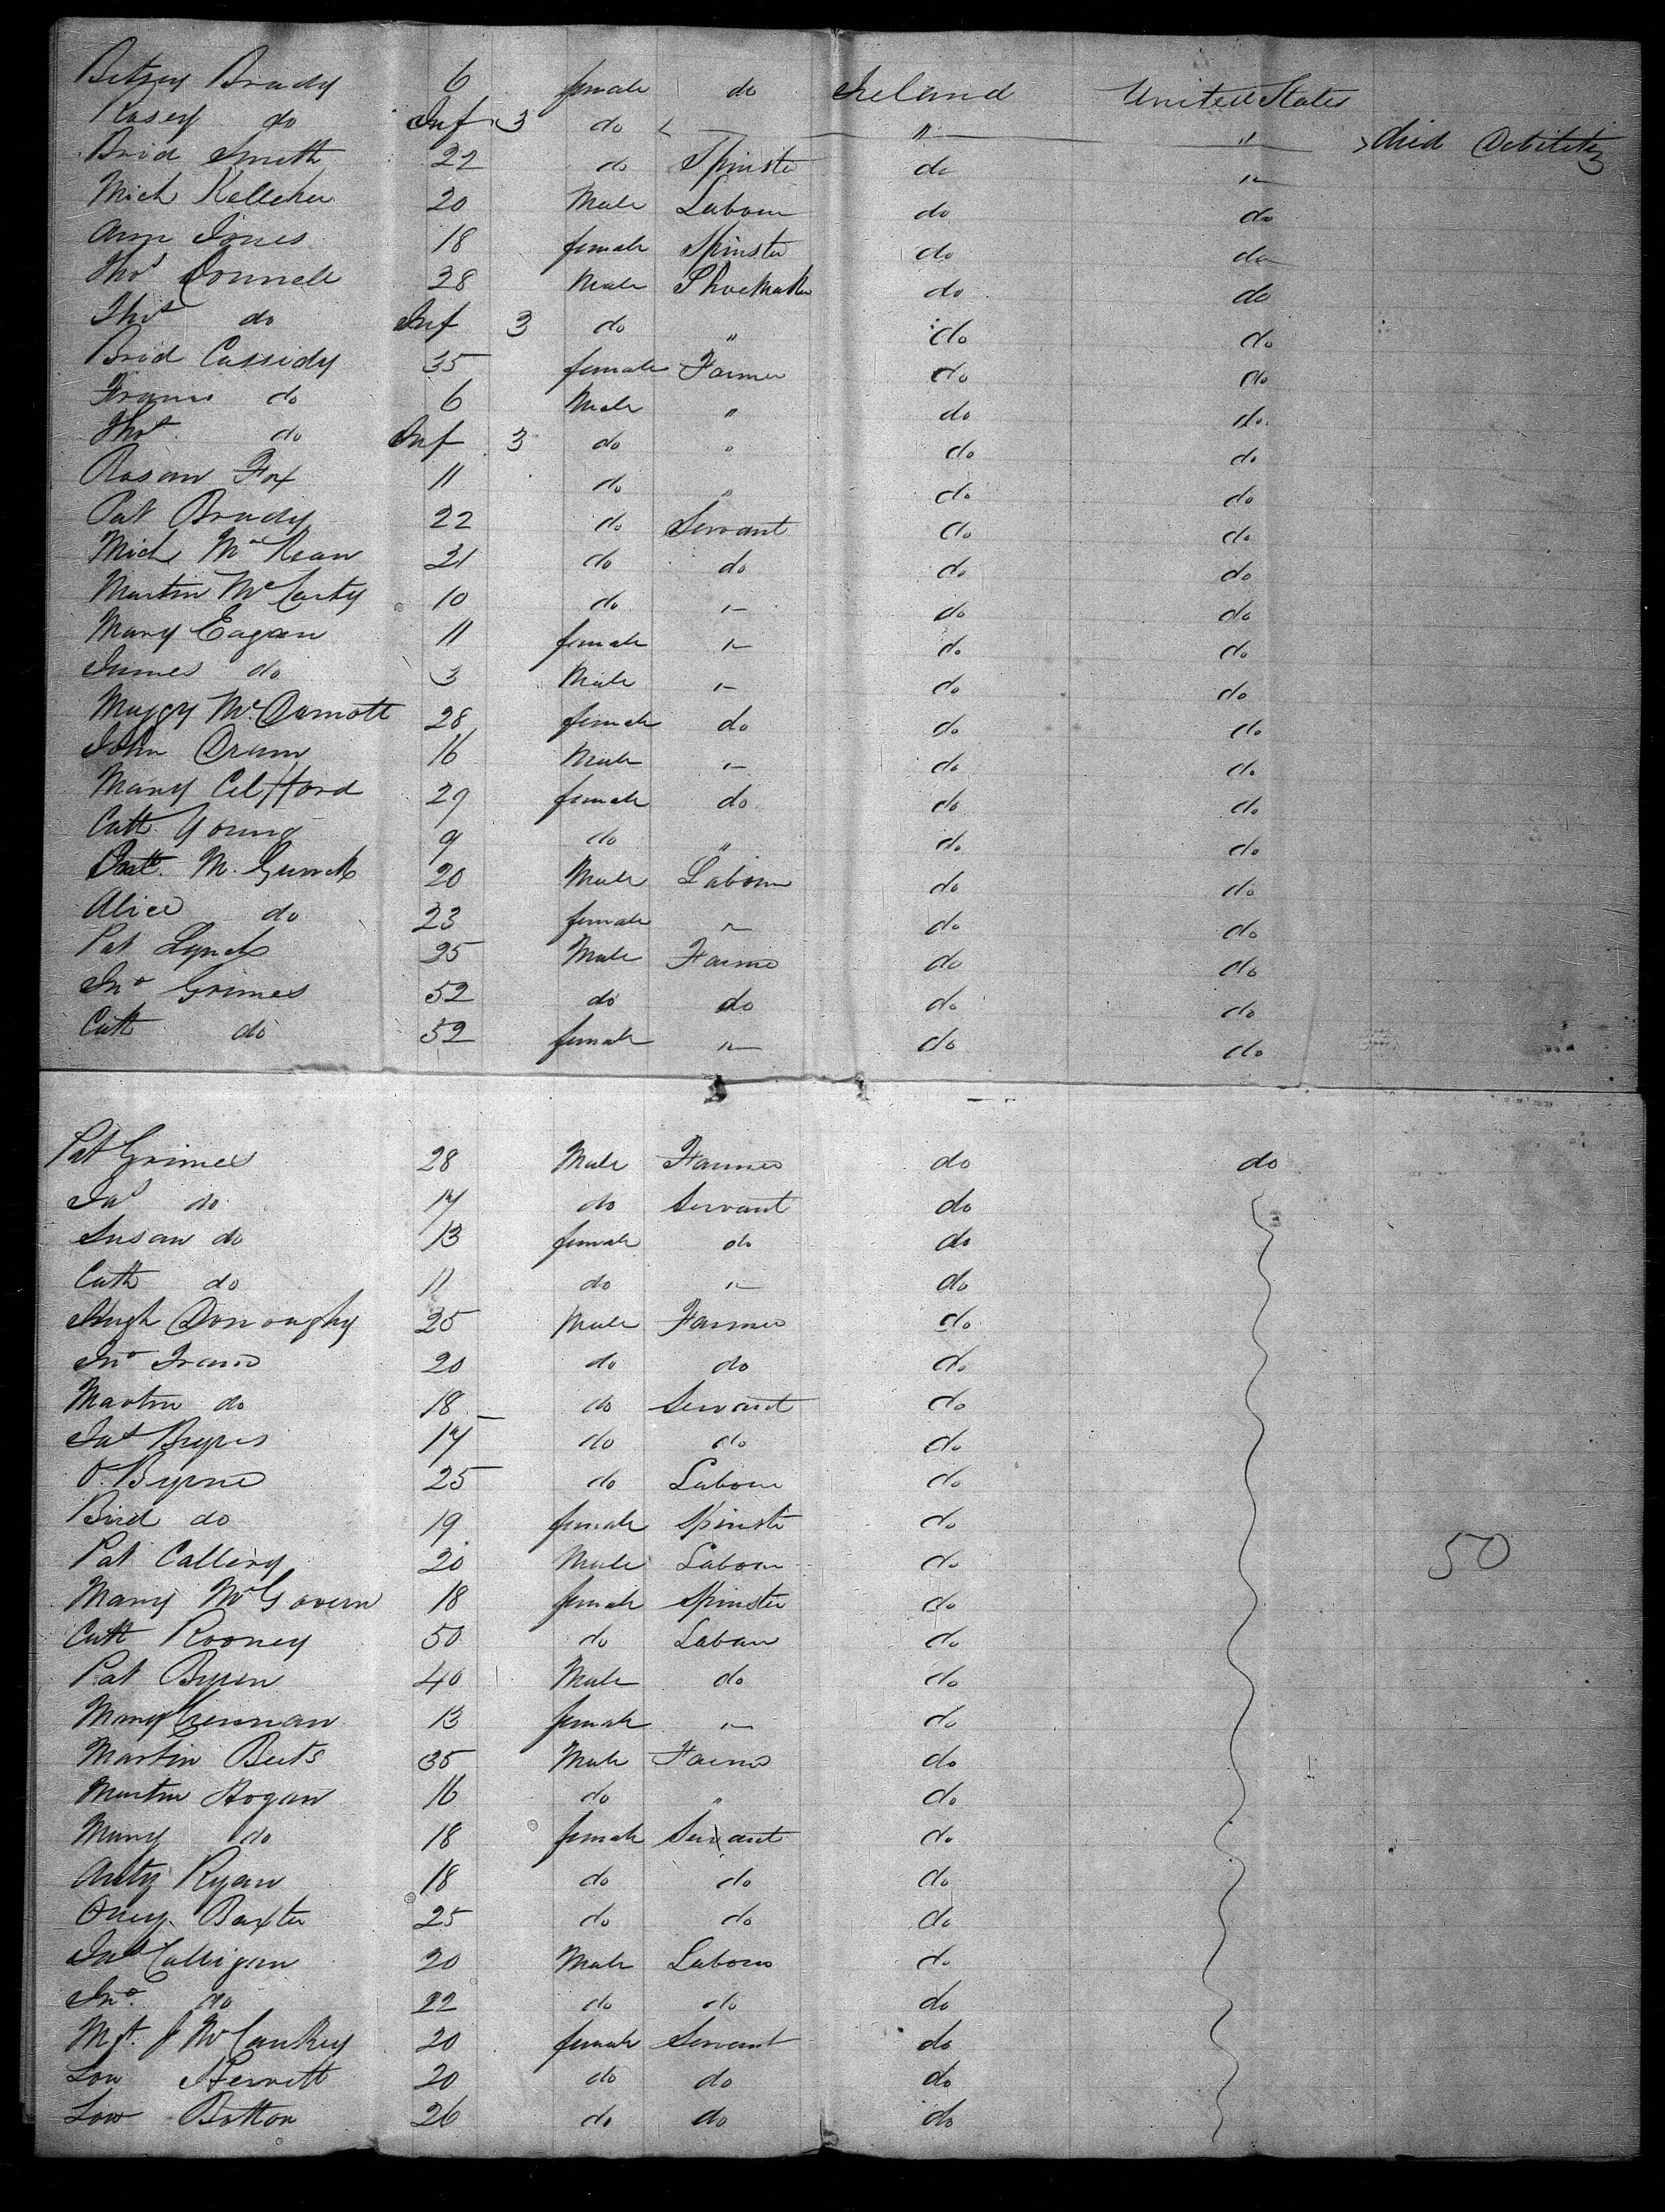 Betsey Brady 6 female do Ireland United States
Rosey do Inf 3 do " " died Debility
Brid Smith 22 do Spinster do "
Mich Kelleher 20 Male Labour do do
Ann Jones 18 female Spinster do do
Thos Connell 28 Male Shoemaker do do
Thos do Inf 3 do " do do
Brid Cassidy 35 female Farmer do do
Frans do 6 Male " do do
Thos do Inf 3 do " do do
Rosan Fox 11 do " do do
Pat Brady 22 do Servant do do
Mich 21 do do do do
Martin McCarty 10 do " do do
Mary Eagan 11 female " do do
James do 3 Male " do do
Maggy McDermott 28 female do do do
John Drum 16 Male " do do
Mary Clifford 27 female do do do
Cath Young 9 do " do do
20 Male Labour do do
Alice do 23 female " do do
Pat Lynch 35 Male Farmer do do
Jno Grimes 52 do do do do
Cath do 52 female " do do
Pat Grimes 28 Male Farmer do do
Jas do 17 do Servant do
Susan do 13 female do do
Cath do 11 do " do
Hugh Donoughy 25 Male Farmer do
Jno 20 do do do
Martin do 18 do Servant do
Jas 17 do do do
O. Byrne 25 do Labour do
Bird do 19 female Spinster do
Pat Callery 20 Male Labour do 50
Mary McGovern 18 female Spinster do
Cath Rooney 50 do Labour do
Pat Byren 40 Male do do
Mary 13 female " do
Martin 35 Male Farmer do
Martin Hogan 16 do " do
Mary do 18 female Servant do
Ryan 18 do do do
Oney Baxter 25 do do do
Jas Culligan 20 Male Labour do
Jno do 22 do do do
Mgt. 20 female Servant do
20 do do do
26 do do do